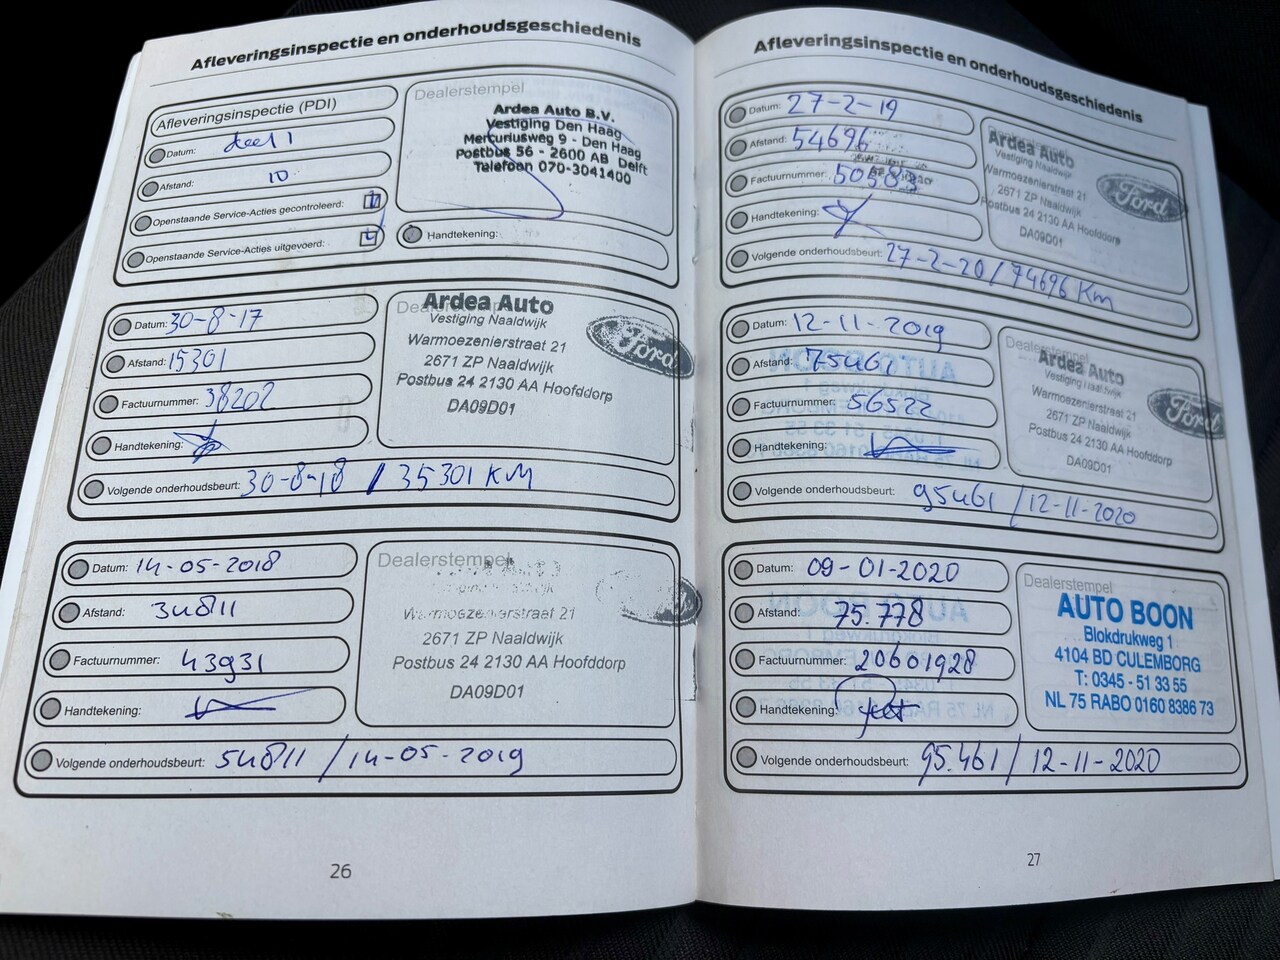 Afleveringsinspectie en onderhoudsgeschiedenis
Afleveringsinspectie (PDI)
Datum: deel 1
Afstand: 10
Openstaande Service-Acties gecontroleerd:
Openstaande Service-Acties uitgevoerd:
Dealerstempel
Ardea Auto B.V.
Vestiging Den Haag
Mercuriusweg 9 - Den Haag
Postbus 56 - 2600 AB Delft
Telefoon 070-3041400
Handtekening:
Datum: 30-8-17
Afstand: 15301
Factuurnummer: 38202
Handtekening:
Dealerstempel
Ardea Auto
Vestiging Naaldwijk
Warmoezenierstraat 21
2671 ZP Naaldwijk
Postbus 24 2130 AA Hoofddorp
DA09D01
Ford
Volgende onderhoudsbeurt: 30-8-18 / 35301 KM
Datum: 14-05-2018
Afstand: 34811
Factuurnummer: 43931
Handtekening:
Dealerstempel
Warmoezenierstraat 21
2671 ZP Naaldwijk
Postbus 24 2130 AA Hoofddorp
DA09D01
Volgende onderhoudsbeurt: 54811 / 14-05-2019
26
Afleveringsinspectie en onderhoudsgeschiedenis
Datum: 27-2-19
Afstand: 54696
Factuurnummer: 50583
Handtekening:
Dealerstempel
Ardea Auto
Vestiging Naaldwijk
Warmoezenierstraat 21
2671 ZP Naaldwijk
Postbus 24 2130 AA Hoofddorp
DA09D01
Ford
Volgende onderhoudsbeurt: 27-2-20 / 74696 Km
Datum: 12-11-2019
Afstand: 75461
Factuurnummer: 56522
Handtekening:
Dealerstempel
Ardea Auto
Vestiging Naaldwijk
Warmoezenierstraat 21
2671 ZP Naaldwijk
Postbus 24 2130 AA Hoofddorp
DA09D01
Ford
Volgende onderhoudsbeurt: 95461 / 12-11-2020
Datum: 09-01-2020
Afstand: 75.778
Factuurnummer: 20601928
Handtekening:
Dealerstempel
AUTO BOON
Blokdrukweg 1
4104 BD CULEMBORG
T: 0345 - 51 33 55
NL 75 RABO 0160 8386 73
Volgende onderhoudsbeurt: 95.461 / 12-11-2020
27